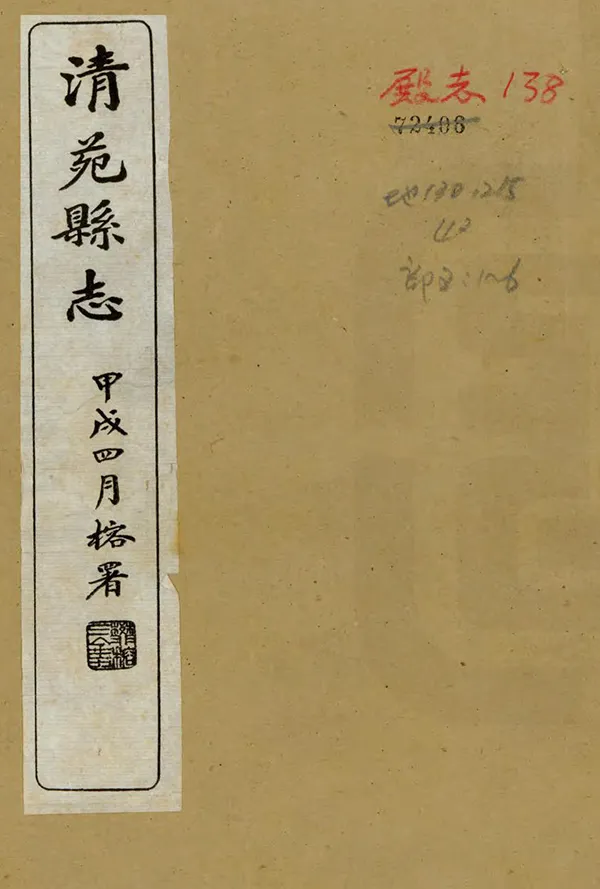 清苑縣志
甲戌四月榕署
殿志 138
72406
地130.215
42